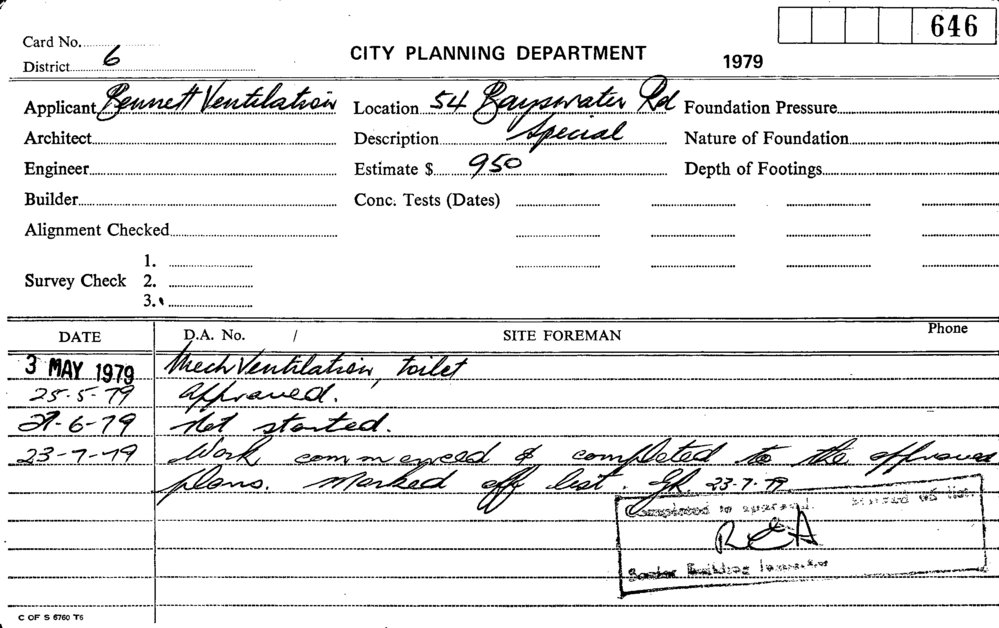 646
Card No.
District 6
CITY PLANNING DEPARTMENT
1979
Applicant Bennett Ventilation Location 54 Bayswater Rd Foundation Pressure
Architect Description Special Nature of Foundation
Engineer Estimate $ 950 Depth of Footings
Builder Conc. Tests (Dates)
Alignment Checked
1.
Survey Check 2.
3.
DATE D.A. No. / SITE FOREMAN Phone
3 MAY 1979 Mech Ventilation, toilet
25-5-79 approved.
-6-79 Not started.
23-7-79 Work commenced & completed to the approved
plans. Marked off list. 23-7-79
Completed as approved. Marked off list.
Building
C OF S 6760 T6